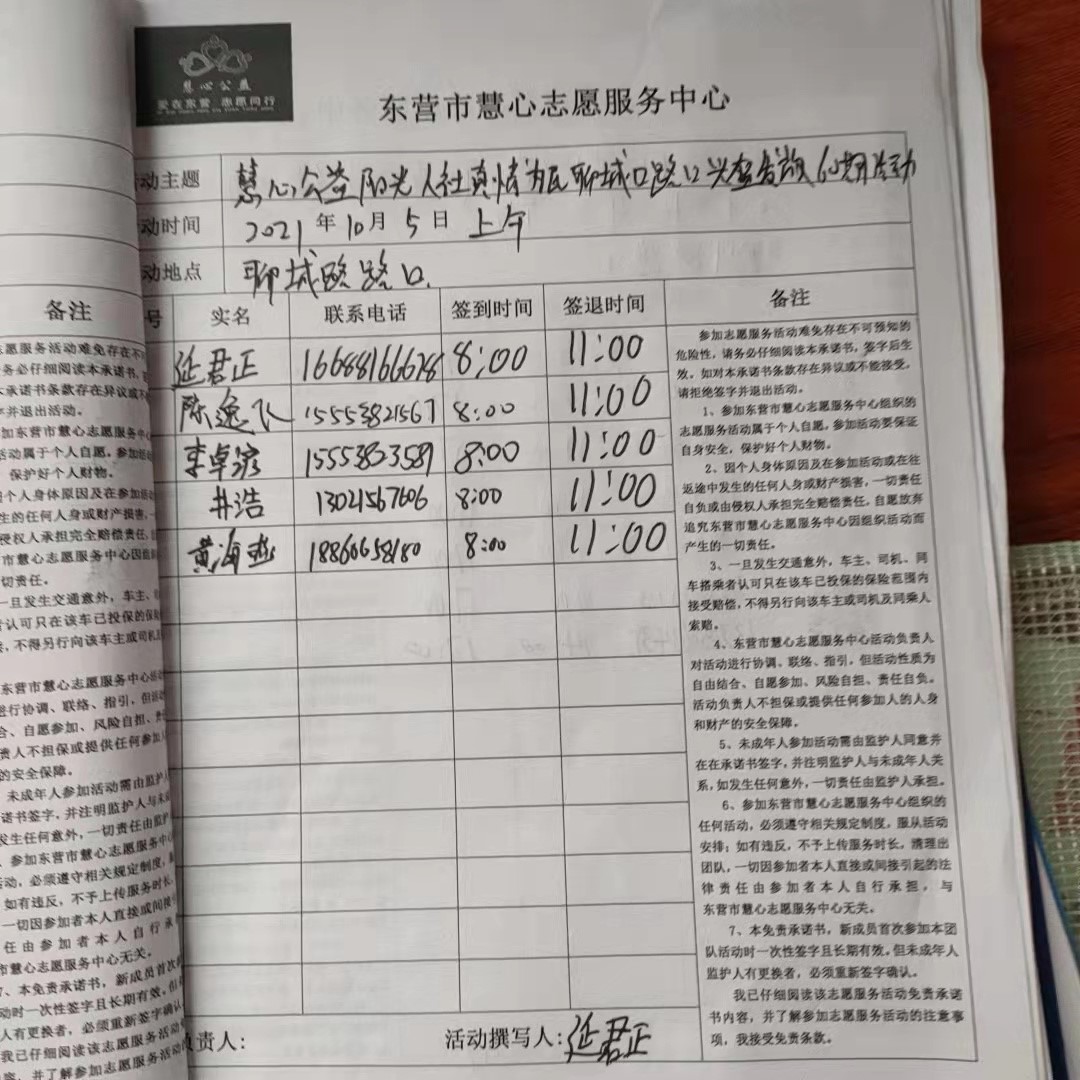 慧心公益
爱在东营 志愿同行
东营市慧心志愿服务中心
动主题 慧心公益阳光人社真情为民聊城口路口 活动
动时间 2021年10月5日 上午
动地点 聊城路路口
号 实名 联系电话 签到时间 签退时间 备注
延君正 16688166678 8:00 11:00
陈逸飞 15553821567 8:00 11:00
李卓 15553833589 8:00 11:00
井浩 13021567606 8:00 11:00
黄海燕 18860658180 8:00 11:00
参加志愿服务活动难免存在不可预知的
危险性,请务必仔细阅读本承诺书,签字后生
效。如对本承诺书条款存在异议或不能接受,
请拒绝签字并退出活动。
1、参加东营市慧心志愿服务中心组织的
志愿服务活动属于个人自愿,参加活动要保证
自身安全,保护好个人财物。
2、因个人身体原因及在参加活动或在往
返途中发生的任何人身或财产损害,一切责任
自负或由侵权人承担完全赔偿责任,自愿放弃
追究东营市慧心志愿服务中心因组织活动而
产生的一切责任。
3、一旦发生交通意外,车主、司机、同
车搭乘者认可只在该车已投保的保险范围内
接受赔偿,不得另行向该车主或司机及同乘人
索赔。
4、东营市慧心志愿服务中心活动负责人
对活动进行协调、联络、指引,但活动性质为
自由结合、自愿参加、风险自担、责任自负。
活动负责人不担保或提供任何参加人的人身
和财产的安全保障。
5、未成年人参加活动需由监护人同意并
在在承诺书签字,并注明监护人与未成年人关
系,如发生任何意外,一切责任由监护人承担。
6、参加东营市慧心志愿服务中心组织的
任何活动,必须遵守相关规定制度,服从活动
安排;如有违反,不予上传服务时长,清理出
团队,一切因参加者本人直接或间接引起的法
律责任由参加者本人自行承担,与
东营市慧心志愿服务中心无关。
7、本免责承诺书,新成员首次参加本团
队活动时一次性签字且长期有效,但未成年人
监护人有更换者,必须重新签字确认。
我已仔细阅读该志愿服务活动免责承诺
书内容,并了解参加志愿服务活动的注意事
项,我接受免责条款。
责人: 活动撰写人:延君正
备注
志愿服务活动难免存在不可
务必仔细阅读本承诺书,
本承诺书条款存在异议或不
字并退出活动。
加东营市慧心志愿服务中心
活动属于个人自愿,参加活动
保护好个人财物。
个人身体原因及在参加活动
生的任何人身或财产损害,一
侵权人承担完全赔偿责任,
市慧心志愿服务中心因组织
切责任。
一旦发生交通意外,车主、
者认可只在该车已投保的保险
,不得另行向该车主或司机
东营市慧心志愿服务中心活
行协调、联络、指引,但活动
合、自愿参加、风险自担、责
责人不担保或提供任何参加人
的安全保障。
未成年人参加活动需由监护人
诺书签字,并注明监护人与未成
发生任何意外,一切责任由监护
、参加东营市慧心志愿服务中心
活动,必须遵守相关规定制度,
如有违反,不予上传服务时长,
一切因参加者本人直接或间接
任由参加者本人自行承
市慧心志愿服务中心无关。
7、本免责承诺书,新成员首次
动时一次性签字且长期有效,但
人有更换者,必须重新签字确认
我已仔细阅读该志愿服务活动
容,并了解参加志愿服务活动